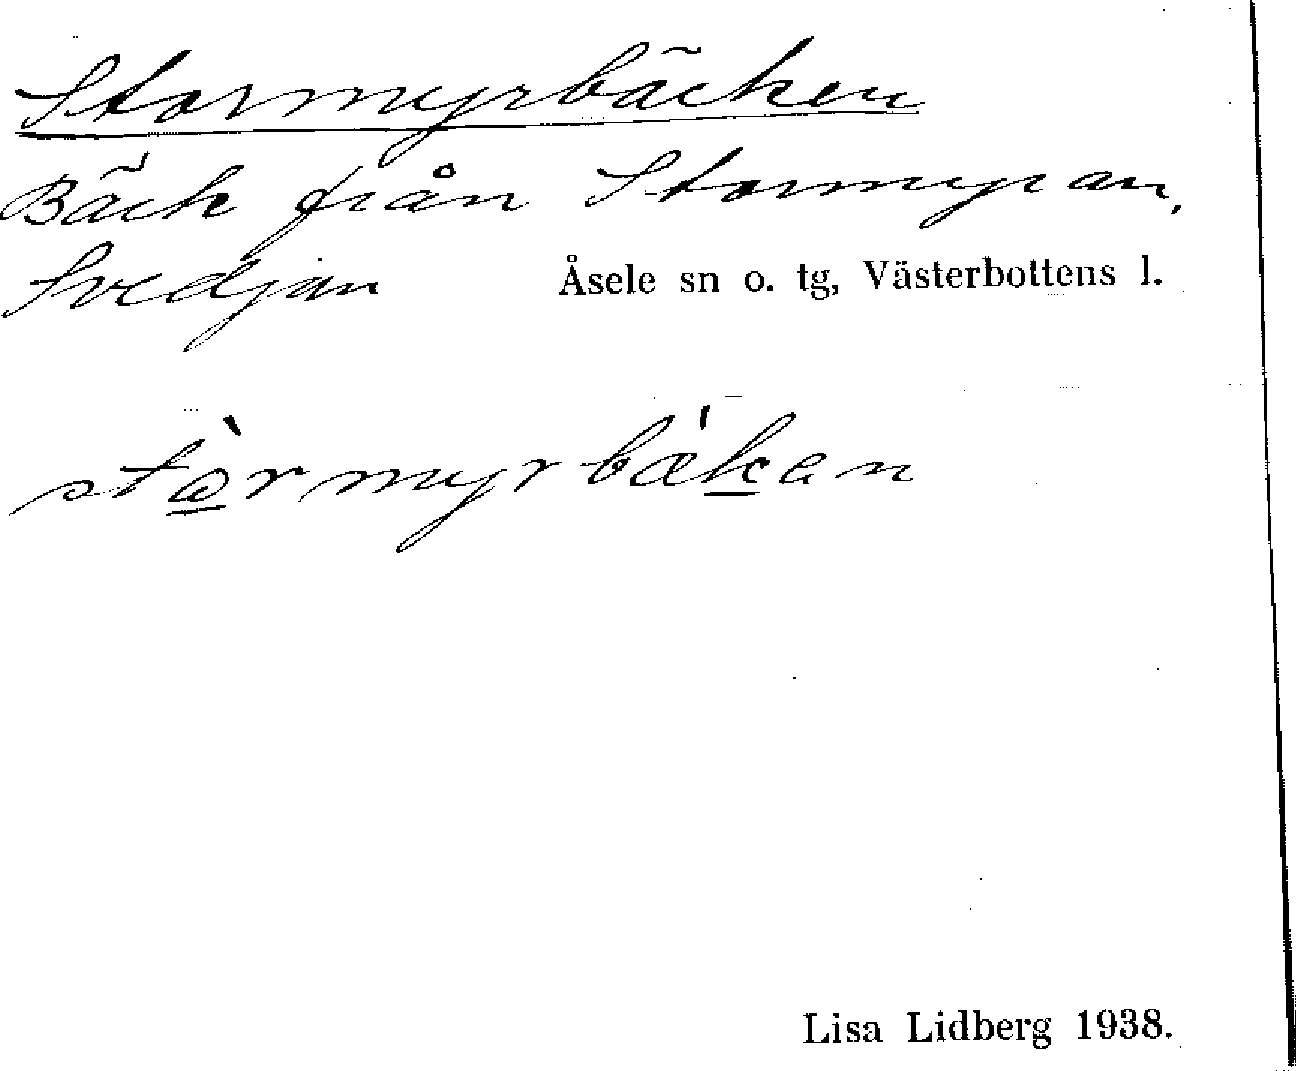 Stormyrbäcken
Bäck från Stormyran,
Svedjan Åsele sn o. tg, Västerbottens l.
stòrmyrbæ'ken
Lisa Lidberg 1938.